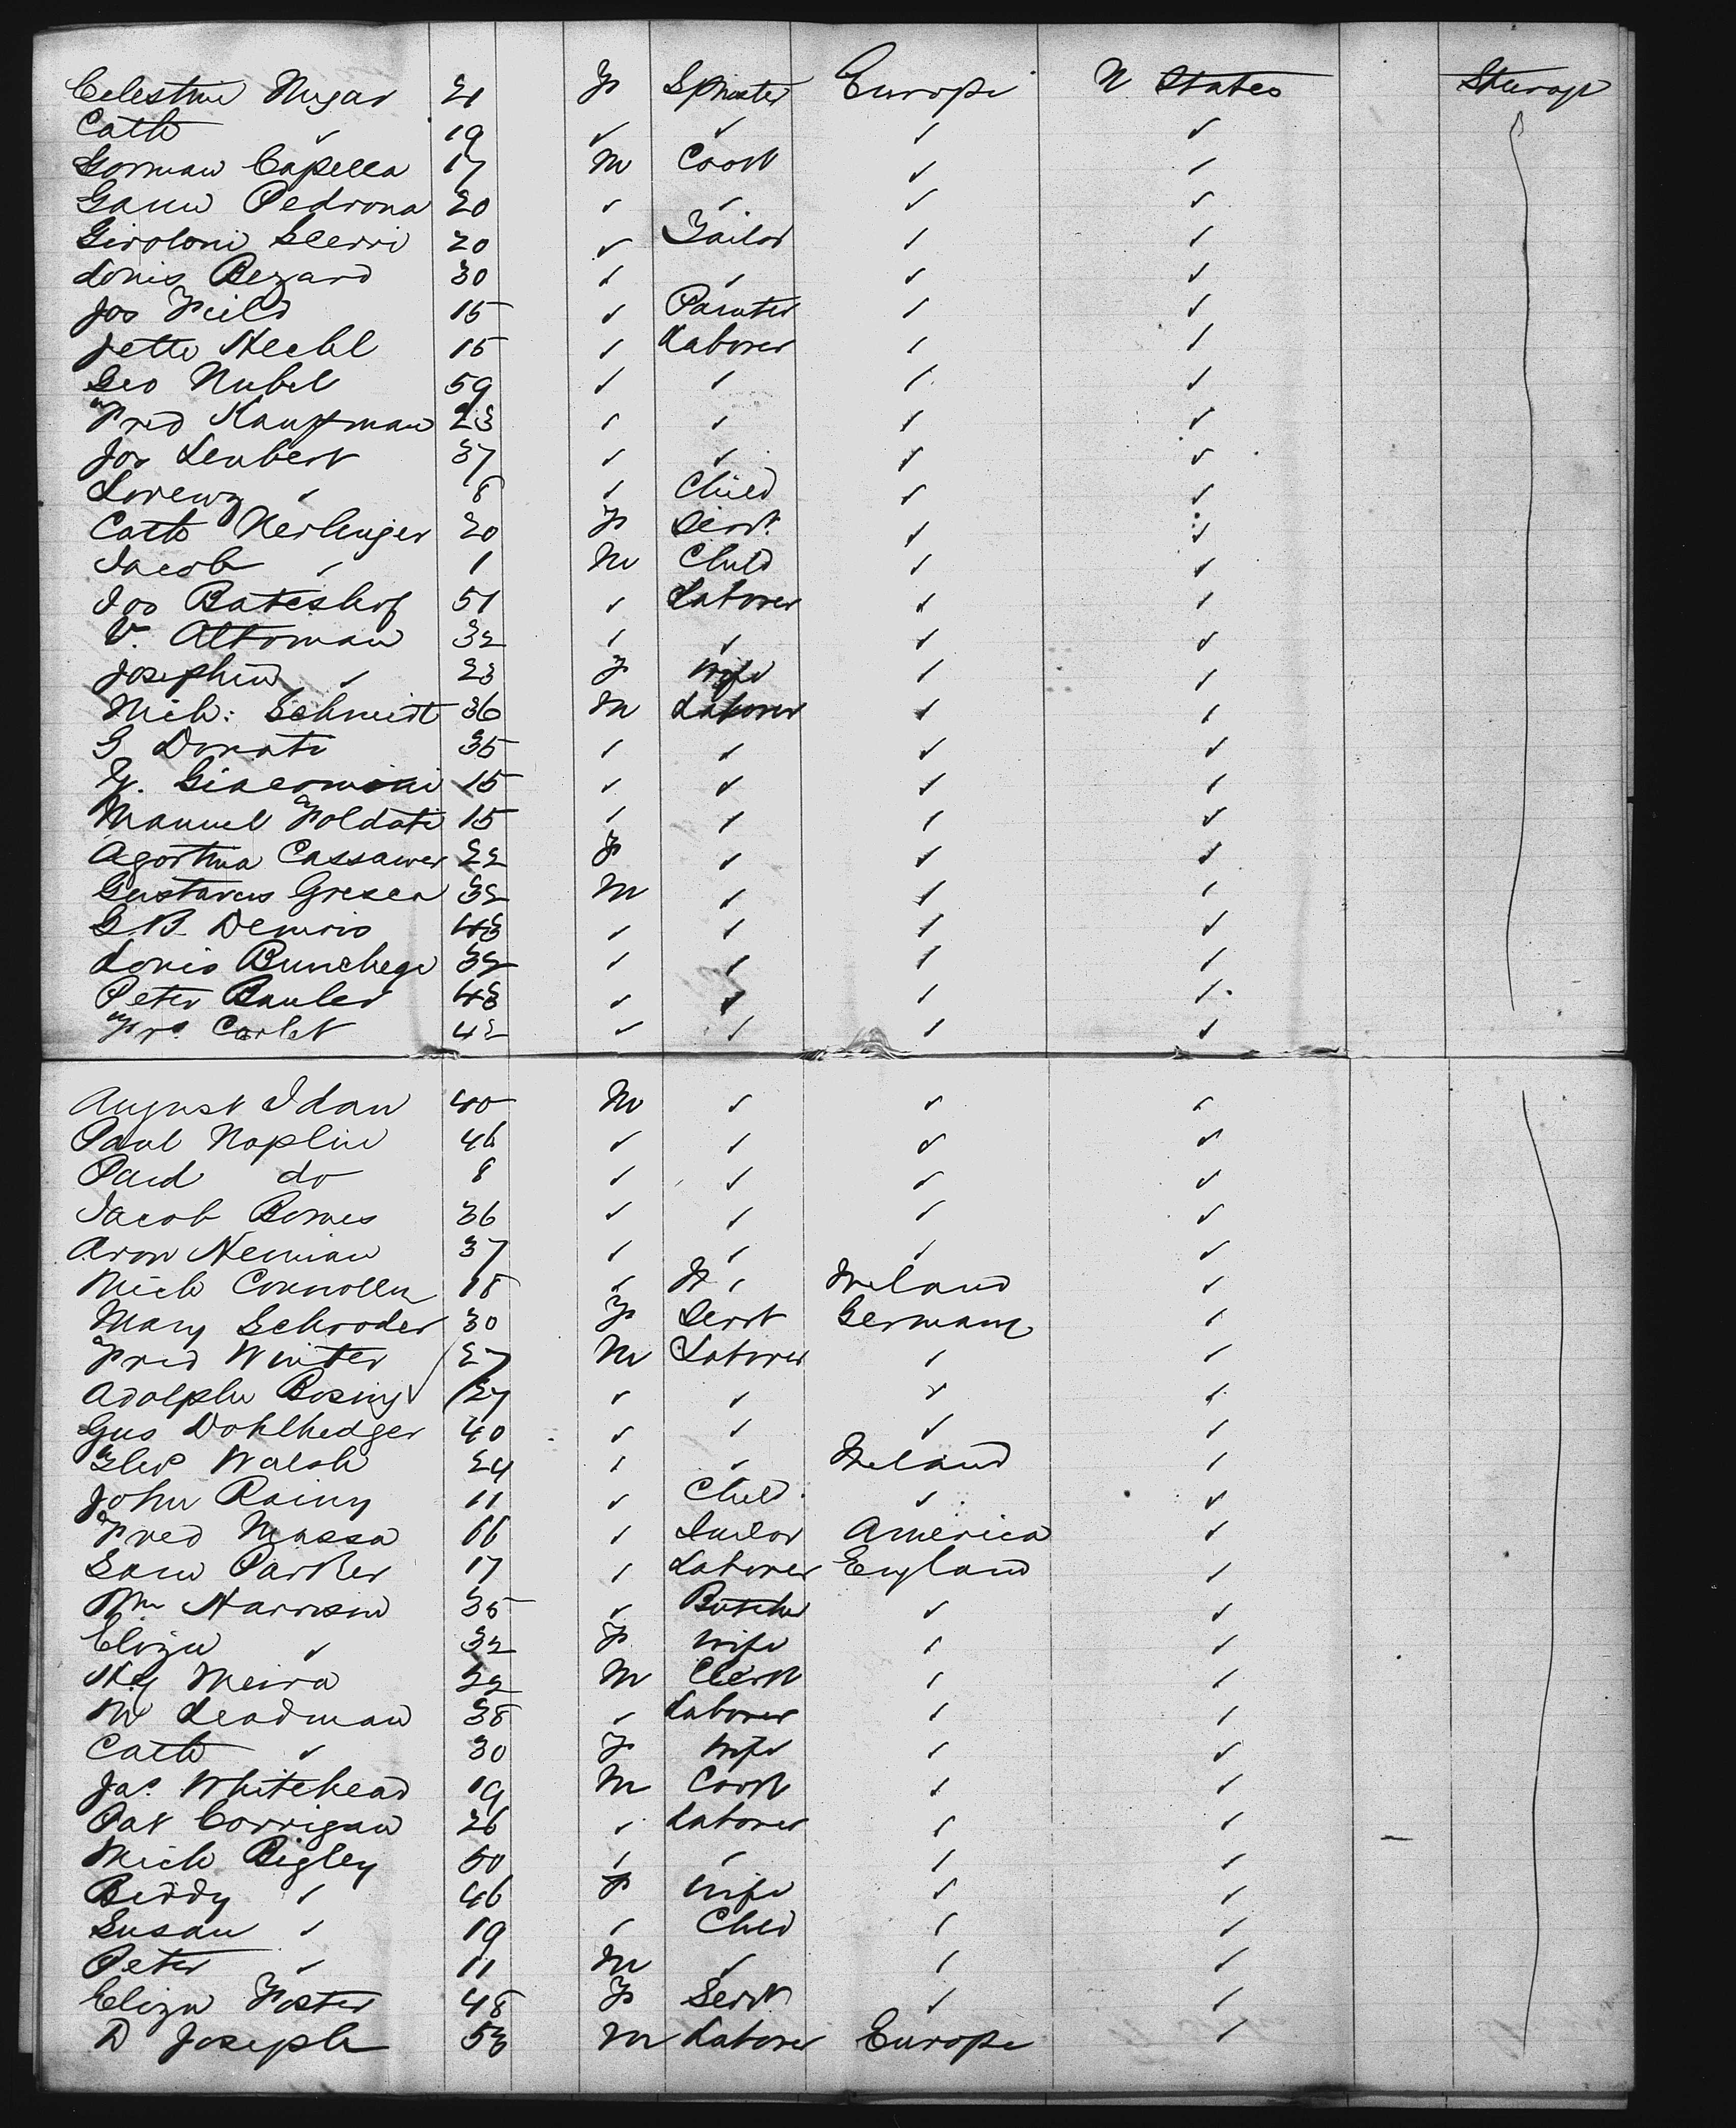 Celestine Nugar 21 F Spinster Europe U States Steerage
Cath ✓ 19 ✓ ✓ ✓ ✓
Gorman Capella 17 M Cook ✓ ✓
Pedrona 20 ✓ ✓ ✓ ✓
20 ✓ Tailor ✓ ✓
Louis Bezard 30 ✓ ✓ ✓ ✓
Jos Feild 15 ✓ Painter ✓ ✓
Jette Hechl 15 ✓ Laborer ✓ ✓
Geo Nubel 59 ✓ ✓ ✓ ✓
Fred Kauffman 23 ✓ ✓ ✓ ✓
Jos Leubert 37 ✓ ✓ ✓ ✓
Lorenz ✓ 8 ✓ Child ✓ ✓
Cath Nerlinger 20 F Servt ✓ ✓
Jacob ✓ 1 M Child ✓ ✓
Jos Bateshof 51 ✓ Laborer ✓ ✓
V. Altoman 32 ✓ ✓ ✓ ✓
Josephine ✓ 23 F Wife ✓ ✓
Mich: Schmidt 36 M Laborer ✓ ✓
G Donati 35 ✓ ✓ ✓ ✓
Giacomini 15 ✓ ✓ ✓ ✓
Manuel Foldati 15 ✓ ✓ ✓ ✓
Agostina 22 F ✓ ✓ ✓
Gustavus 32 M ✓ ✓ ✓
G.B. 48 ✓ ✓ ✓ ✓
Louis 32 ✓ ✓ ✓ ✓
Peter Bauler 48 ✓ ✓ ✓ ✓
Frs. Carlet 42 ✓ ✓ ✓ ✓
August Idan 40 M ✓ ✓ ✓
Paul Noplin 46 ✓ ✓ ✓ ✓
Paul do 8 ✓ ✓ ✓ ✓
Jacob 36 ✓ ✓ ✓ ✓
Aron Neuman 37 ✓ ✓ ✓ ✓
Mich Connolly 18 ✓ ✓ Ireland ✓
Mary Schroder 30 F Servt Germany ✓
Fred Winter 27 M Laborer ✓ ✓
Adolphe Bosing 27 ✓ ✓ ✓ ✓
Gus Dohlhedger 40 ✓ ✓ ✓ ✓
Walsh 24 ✓ ✓ Ireland ✓
John Rainy 11 ✓ Child ✓ ✓
Fred Massa 66 ✓ Sailor America ✓
Sam Parker 17 ✓ Laborer England ✓
Wm Harrison 35 ✓ Butcher ✓ ✓
Eliza ✓ 32 F Wife ✓ ✓
Hy Meira 22 M Clerk ✓ ✓
W Leadman 38 ✓ Laborer ✓ ✓
Cath ✓ 30 F Wife ✓ ✓
Jas. Whitehead 19 M Cook ✓ ✓
Pat Corrigan 26 ✓ Laborer ✓ ✓
Mich Bigley 50 ✓ ✓ ✓ ✓
Biddy ✓ 46 F Wife ✓ ✓
Susan ✓ 19 ✓ Child ✓ ✓
Peter ✓ 11 M ✓ ✓ ✓
Eliza Foster 48 F Servt ✓ ✓
D Joseph 53 M Laborer Europe ✓